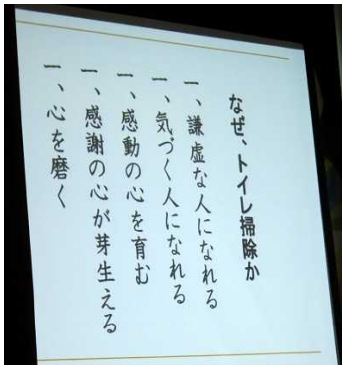 なぜ、トイレ掃除か
一、謙虚な人になれる
一、気づく人になれる
一、感動の心を育む
一、感謝の心が芽生える
一、心を磨く